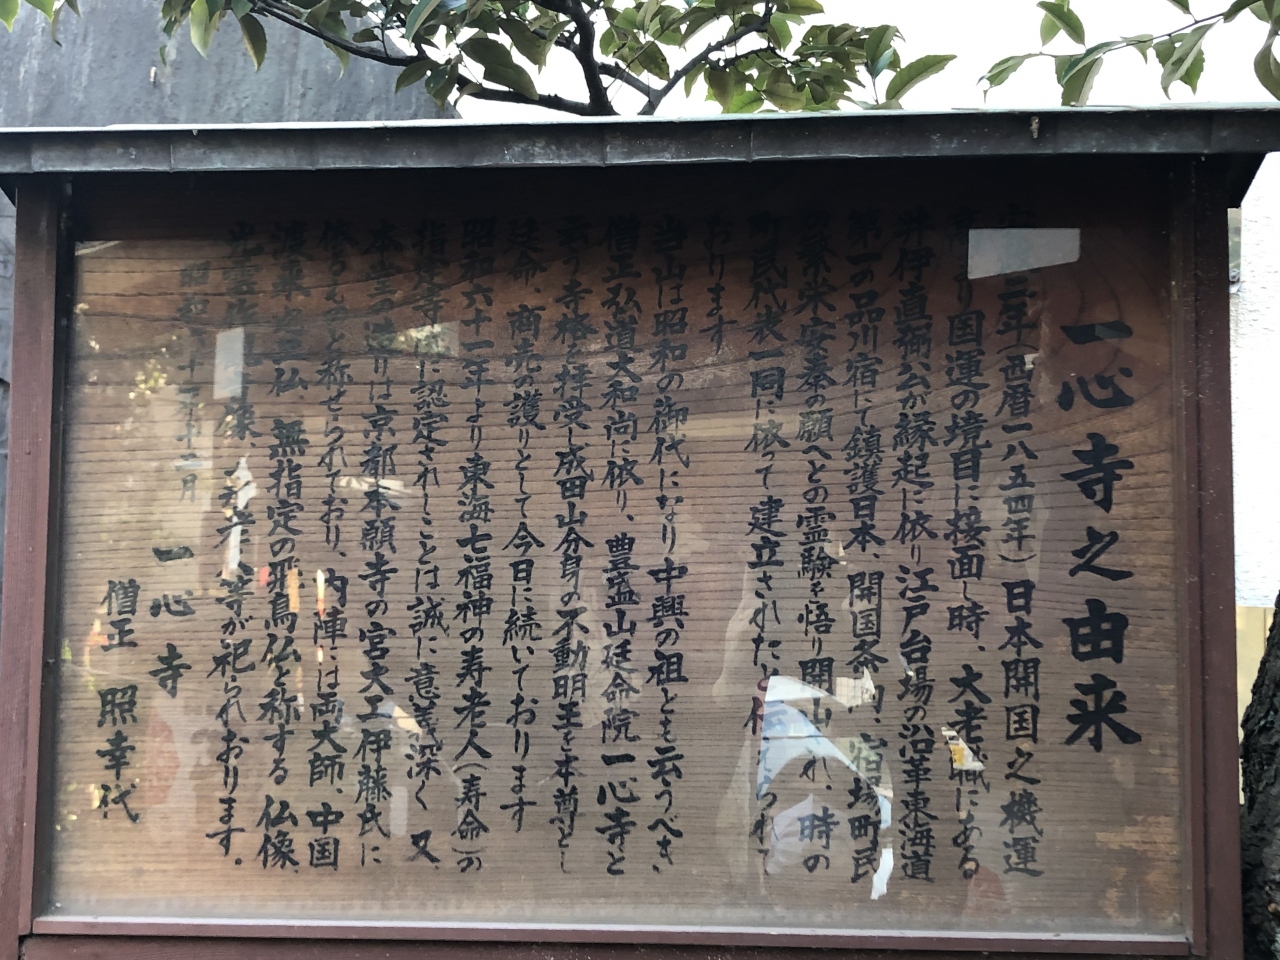 一心寺之由来
三年（西暦一八五四年）日本開国之機運
り国運の境目に接面し時、大老職にある
井伊直弼公が縁起に依り江戸台場の沿革東海道
第一の品川宿にて鎮護日本、開国条 、宿場町民
繁栄安泰の願へとの霊験を悟り開山 れ、時の
町民代表一同に依って建立されたと伝えられて
おります
当山は昭和の御代になり中興の祖とも云うべき、
僧正弘道大和尚に依り、豊盛山延命院一心寺と
云う寺格を拝受し成田山分身の不動明王を本尊とし
延命、商売の護りとして今日に続いております
昭和六十一年より東海七福神の寿老人（寿命）の
指定寺院に認定されしことは誠に意義深く又、
本堂の造りは京都本願寺の宮大工伊藤氏に
依るものと称せられており、内陣には両大師、中国
渡来 仏、無指定の飛鳥仏と称する仏像、
像、 寿老人等が祀られおります。
昭和 十 年十二月
一心寺
僧正 照幸代